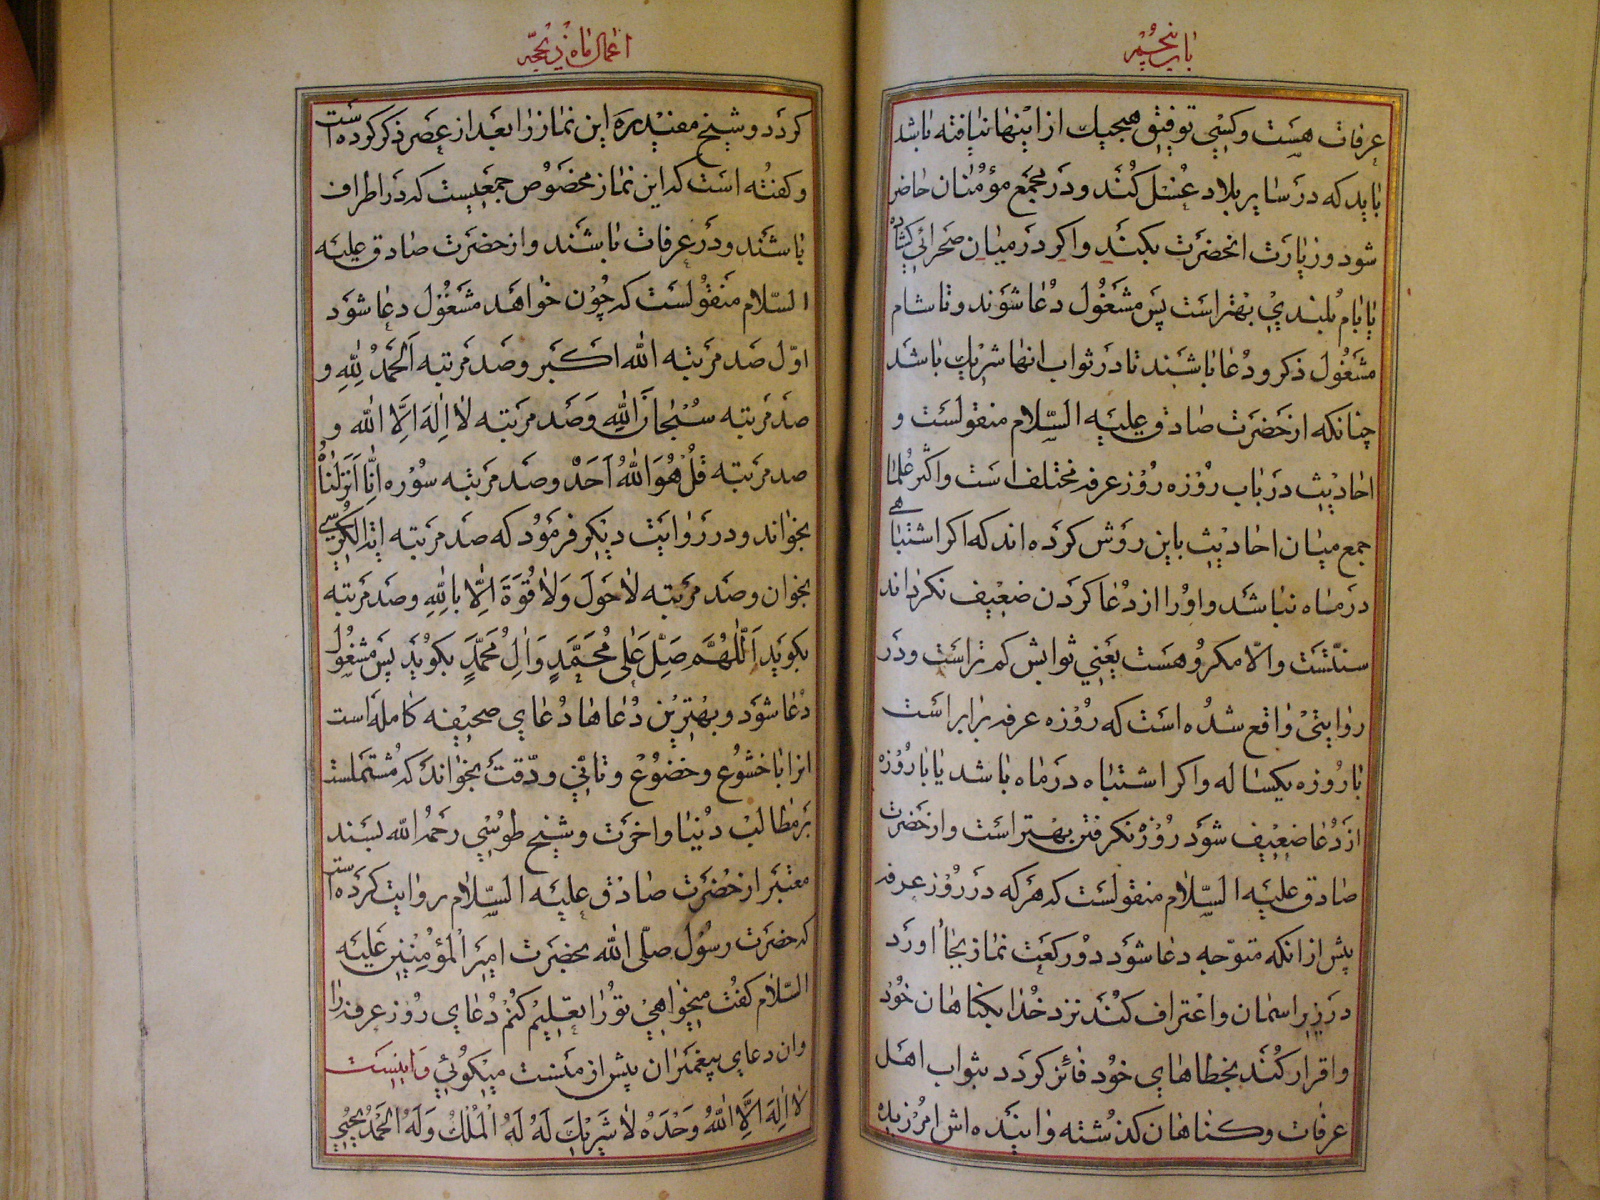 باب پنجم
عرفات هست و کسی توفیق هیچیک از اینها نیافته باشد
باید که در سایر بلاد غسل کند و در مجمع مؤمنان حاضر
شود و زیارت انحضرت بکند و اکر در میان صحرائی کشاده
یا بام بلندی بهتر است پس مشغول دعا شوند و تا شام
مشغول ذکر و دعا باشند تا در ثواب انها شریک باشد
چنانکه از حضرت صادق علیه السلام منقولست و
احادیث در باب روزه روز عرفه مختلف است و اکثر علما
جمع میان احادیث باین روش کرده اند که اکر اشتباهی
در ماه نباشد و او را از دعا کردن ضعیف نکرداند
سنتست و الا مکروهست یعنی ثوابش کم تر است و در
روایتی واقع شده است که روزه عرفه برابر است
با روزه یکساله و اکر اشتباه در ماه باشد یا با روزه
از دعا ضعیف شود روزه نکرفتن بهتر است و از حضرت
صادق علیه السلام منقولست که هر که در روز عرفه
پیش از انکه متوجه دعا شود دو رکعت نماز بجا اورد
در زیر اسمان و اعتراف کند نزد خدا بکناهان خود
و اقرار کند بخطاهای خود فائز کردد بثواب اهل
عرفات و کناهان کذشته و اینده اش امرزیده
اعمال ماه ذیحجه
کردد و شیخ مفید ره این نماز را بعد از عصر ذکر کرده است
و کفته است که این نماز مخصوص جمعیست که در اطراف
باشند و در عرفات باشند و از حضرت صادق علیه
السلام منقولست که چون خواهد مشغول دعا شود
اول صد مرتبه الله اکبر و صد مرتبه اَلحَمدُ لِلّٰهِ و
صد مرتبه سُبْحانَ اللّٰهِ وَ صد مرتبه لا اِلٰهَ اِلَّا اللّٰه و
صد مرتبه قُلْ هُوَ اللّٰهُ اَحَدٌ و صد مرتبه سوره اِنّا اَنزَلناهُ
بخواند و در روایت دیکر فرمود که صد مرتبه ایة الکرسی
بخوان و صد مرتبه لا حَولَ وَلا قُوَةَ اِلّا بِاللّٰهِ و صد مرتبه
بکوید اَللّٰهُمَّ صَلِّ عَلی مُحَمَّدٍ وَ الِ مُحَمَّدٍ بکوید پس مشغول
دعا شود و بهترین دعاها دعای صحیفه کامله است
انرا با خشوع و خضوع و تانی و دقت بخواند که مشتملست
بر مطالب دنیا و اخرت و شیخ طوسی رحمه الله بسند
معتبر از حضرت صادق علیه السلام روایت کرده است
که حضرت رسول صلی الله بحضرت امیر المؤمنین علیه
السلام کفت میخواهی تو را تعلیم کنم دعای روز عرفه را
و ان دعای پیغمبران پیش از منست میکوئی و اینست
لا اِلٰهَ اِلَّا اللّٰهُ وَحْدَهُ لا شَریکَ لَهُ لَهُ الْمُلْکُ وَلَهُ الْحَمْدُ یُحْیی